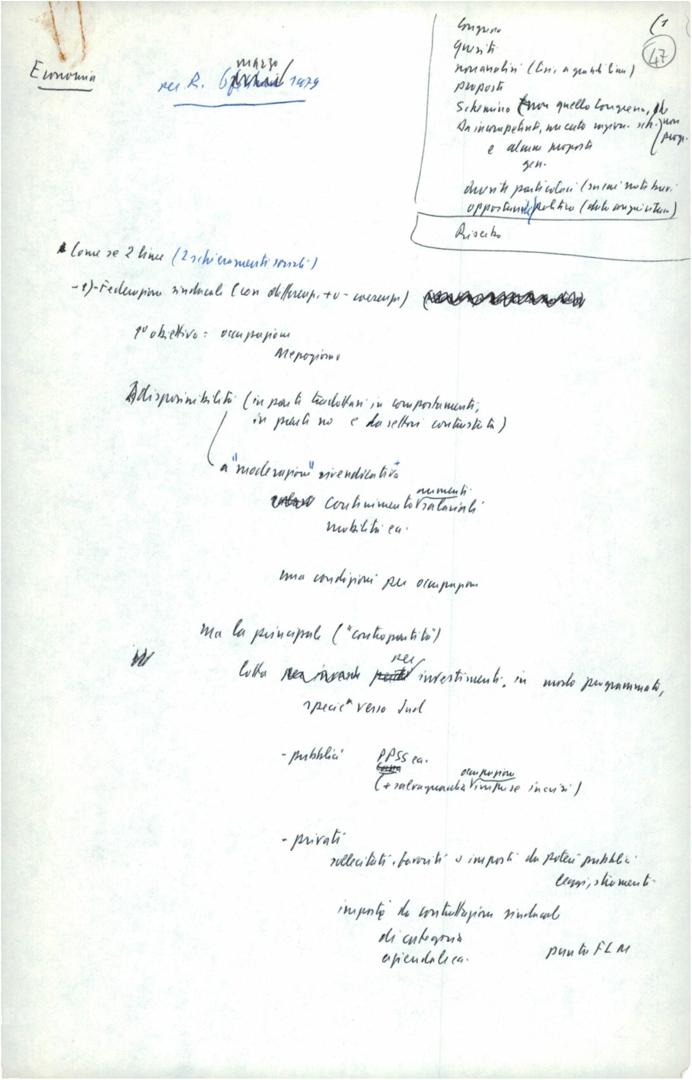 (1
47
Economia
per R. 6 marzo 1979
Congresso
Quesiti
non analisi (
proposte
Schemino (non quello Congresso,
Da incompetenti,
e alcune proposte
gen.
diversità particolari (
opportunità politica (
Come se 2 linee (2 schieramenti sociali)
-1)-Federazione sindacale (con differenze, + o - coerenze)
1° obiettivo: occupazione
Mezzogiorno
disponibilità (in parte tradottasi in comportamenti,
in parte no e da settori contrastata)
a "moderazione" rivendicativa
contenimento aumenti salariali
mobilità ec.
una condizione per occupazione
ma la principale ("contropartita")
lotta per investimenti, in modo programmato,
specie verso Sud
- pubblici PPSS ec.
(+ salvaguardia occupazione imprese in crisi)
- privati
sollecitati, favoriti o imposti da poteri pubblici
leggi, strumenti
imposti da contrattazione sindacale
di categoria
aziendale ec.
punto FLM